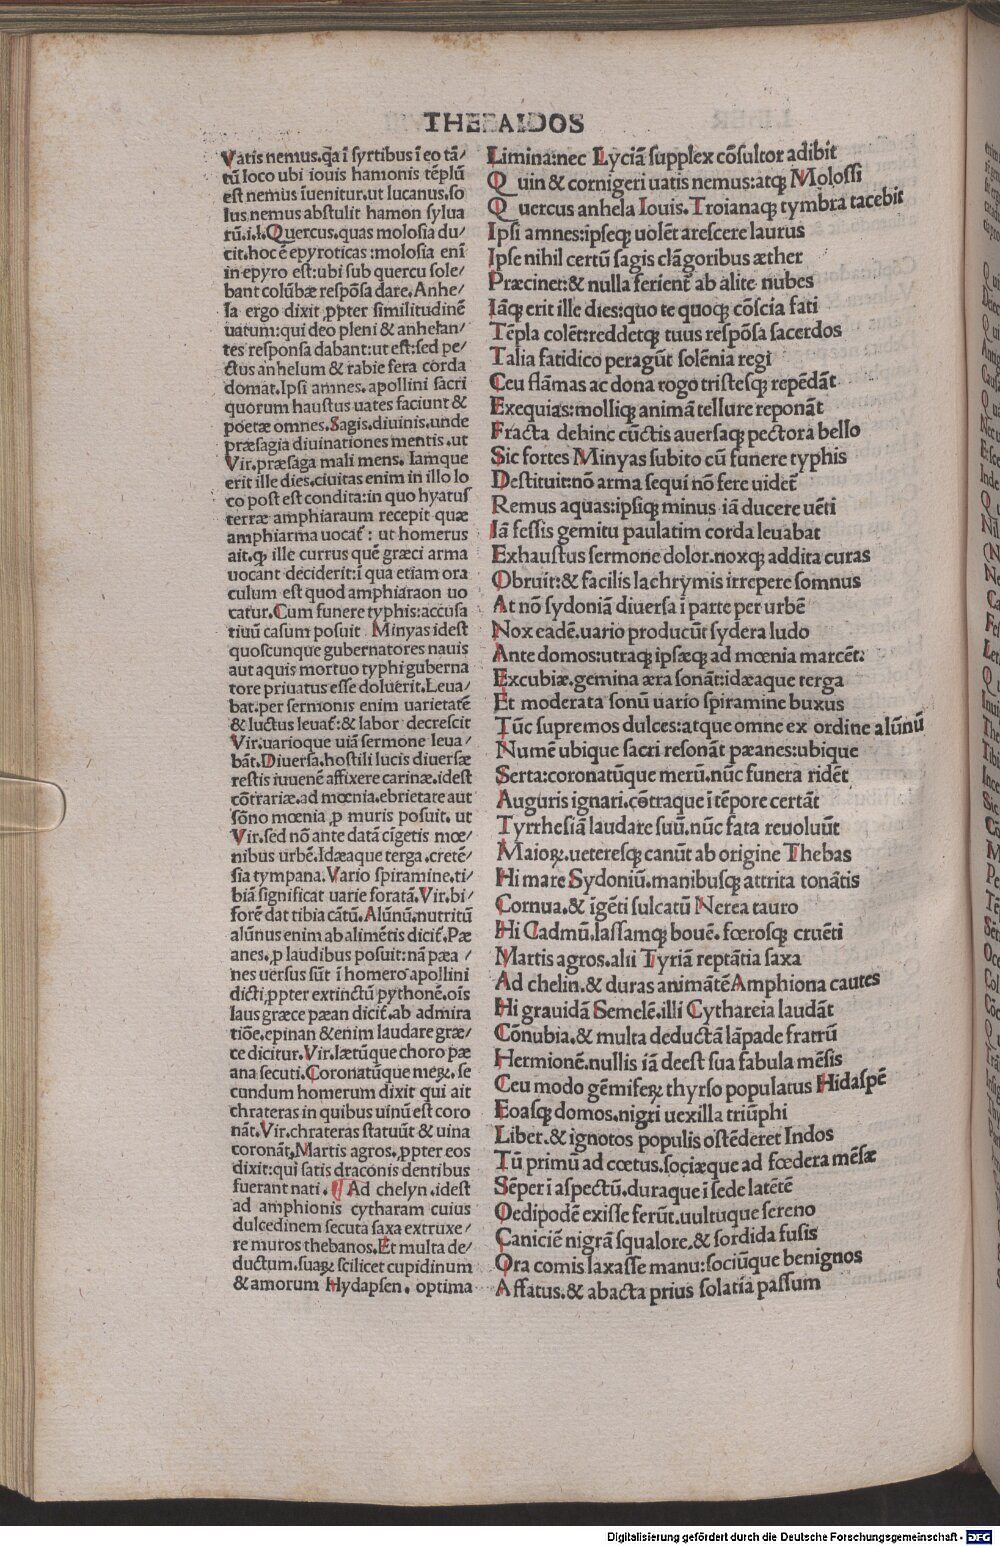 THEBAIDOS
Vatis nemus.q̄a ī syrtibus ī eo tā/
tū loco ubi iouis hamonis tēplū
est nemus īuenitur.ut lucanus.so
lus nemus abstulit hamon sylua
rū.i.l.Quercus.quas molosia du/
cit.hoc ē epyroticas :molosia enī
in epyro est:ubi sub quercu sole/
bant colūbæ respōsa dare.Anhe/
la ergo dixit ꝓpter similitudinē
uatum:qui deo pleni & anhelan/
tes responsa dabant:ut est:sed pe/
ctus anhelum & rabie fera corda
domat.Ipsi amnes.apollini sacri
quorum haustus uates faciunt &
poetæ omnes.Sagis.diuinis.unde
præsagia diuinationes mentis.ut
Vir.præsaga mali mens. Iamque
erit ille dies.ciuitas enim in illo lo
co post est condita:in quo hyatus
terræ amphiaraum recepit quæ
amphiarma uocat̄ : ut homerus
ait.ꝙ ille currus quē græci arma
uocant deciderit:ī qua etiam ora
culum est quod amphiaraon uo
catur.Cum funere typhis:accusa
tiuū casum posuit Minyas idest
quoscunque gubernatores nauis
aut aquis mortuo typhi guberna
tore priuatus esse doluerit.Leua/
bat.per sermonis enim uarietatē
& luctus leuat̄:& labor decrescit
Vir.uarioque uiā sermone leua/
bāt.Diuersa.hostili lucis diuersæ
restis iuuenē affixere carinæ.idest
cōtrariæ.ad mœnia.ebrietate aut
sōno mœnia ꝓ muris posuit. ut
Vir.sed nō ante datā cīgetis mœ/
nibus urbē.Idæaque terga.cretē/
sia tympana.Vario spiramine.ti/
biā significat uarie foratā.Vir.bi/
forē dat tibia cātū.Alūnū.nutritū
alūnus enim ab alimētis dicit̄.Pæ
anes.ꝓ laudibus posuit:nā pæa /
nes uersus sūt ī homero apollini
dicti ꝓpter extinctū pythonē.oīs
laus græce pæan dicit̄.ab admira
tiōe.epinan &enim laudare græ/
ce dicitur.Vir.lætūque choro pæ
ana secuti.Coronatūque meꝝ.se
cundum homerum dixit qui ait
chrateras in quibus uinū est coro
nāt.Vir.chrateras statuūt & uina
coronāt,Martis agros.ꝓpter eos
dixit:qui satis draconis dentibus
fuerant nati.¶Ad chelyn.idest
ad amphionis cytharam cuius
dulcedinem secuta saxa extruxe/
re muros thebanos.Et multa de/
ductum.suaꝝ scilicet cupidinum
& amorum Hydapsen. optima
Limina:nec Lyciā supplex cōsultor adibit
Quin & cornigeri uatis nemus:atqꝫ Molossi
Quercus anhela Iouis.Troianaqꝫ tymbra tacebit
Ipsi amnes:ipseqꝫ uolēt arescere laurus
Ipse nihil certū sagis clāgoribus æther
Præcinet:& nulla ferient̄ ab alite nubes
Iāqꝫ erit ille dies:quo te quoqꝫ cōscia fati
Tēpla colēt:reddetqꝫ tuus respōsa sacerdos
Talia fatidico peragūt solēnia regi
Ceu flāmas ac dona rogo tristesqꝫ repēdāt
Exequias:molliqꝫ animā tellure reponāt
Fracta dehinc cūctis auersaqꝫ pectora bello
Sic fortes Minyas subito cū funere typhis
Destituit:nō arma sequi nō fere uidet̄
Remus aquas:ipsiqꝫ minus iā ducere uēti
Iā fessis gemitu paulatim corda leuabat
Exhaustus sermone dolor.noxqꝫ addita curas
Obruit:& facilis lachrymis irrepere somnus
At nō sydoniā diuersa ī parte per urbē
Nox eadē.uario producūt sydera ludo
Ante domos:utraqꝫ ipsæqꝫ ad mœnia marcēt:
Excubiæ.gemina æra sonāt:idæaque terga
Et moderata sonū uario spiramine buxus
Tūc supremos dulces:atque omne ex ordine alūnū
Numē ubique sacri resonāt pæanes:ubique
Serta:coronatūque merū.nūc funera ridēt
Auguris ignari.cōtraque ī tēpore certāt
Tyrrhesiā laudare suū.nūc fata reuoluūt
Maioꝝ.ueteresqꝫ canūt ab origine Thebas
Hi mare Sydoniū.manibusqꝫ attrita tonātis
Cornua.& īgēti sulcatū Nerea tauro
Hi Cadmū.lassamqꝫ bouē.fœrosqꝫ cruēti
Martis agros.alii Tyriā reptātia saxa
Ad chelin.& duras animātē Amphiona cautes
Hi grauidā Semelē.illi Cythareia laudāt
Cōnubia.& multa deductā lāpade fratrū
Hermionē.nullis iā deest sua fabula mēsis
Ceu modo gēmiferꝝ thyrso populatus Hidaspē
Eoasqꝫ domos.nigri uexilla triūphi
Liber.& ignotos populis ostēderet Indos
Tū primū ad cœtus.sociæque ad fœdera mēsæ
Sēper ī aspectū.duraque ī sede latētē
Oedipodē exisse ferūt.uultuque sereno
Caniciē nigrā squalore.& sordida fusis
Ora comis laxasse manu:sociūque benignos
Affatus.& abacta prius solatia passum
Digitalisierung gefördert durch die Deutsche Forschungsgemeinschaft - DFG